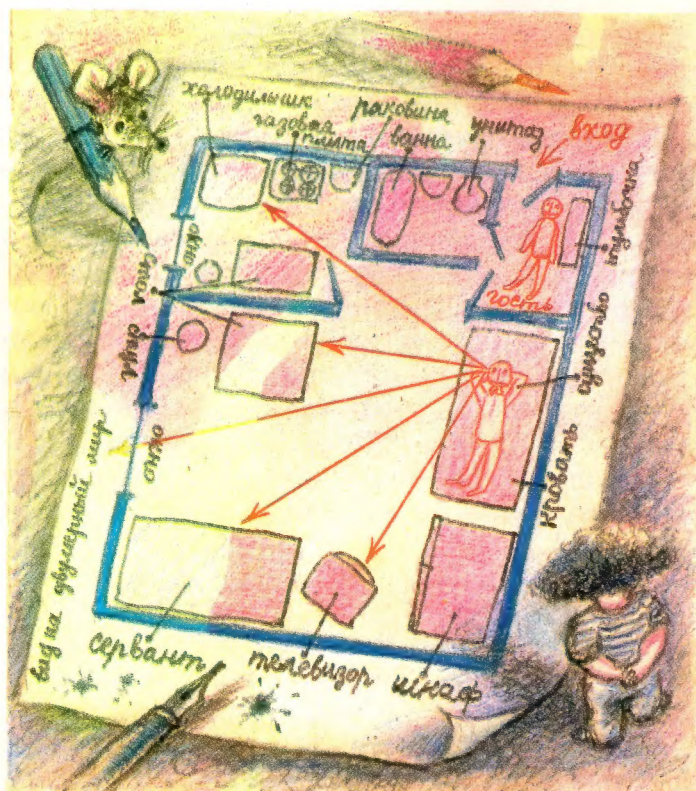 холодильник
газовая
плита
раковина
ванна
унитаз
вход
тумбочка
гость
окно
стол
стул
существо
кровать
окно
вид на двумерный мир
сервант
телевизор
шкаф